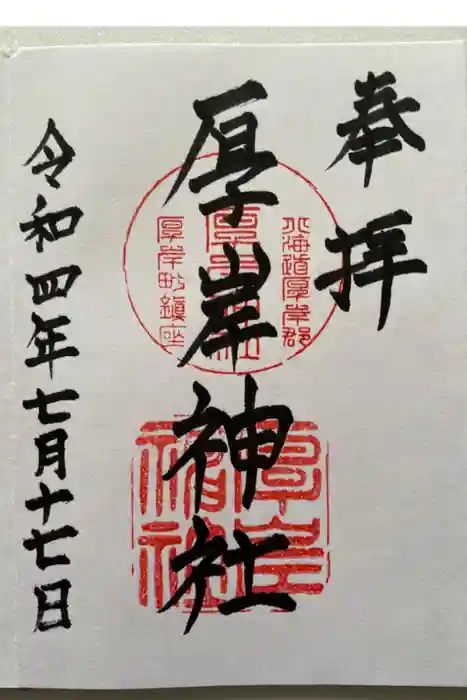 奉拝
北海道厚岸郡
厚岸神社
厚岸町鎮座
厚岸神社
令和四年七月十七日